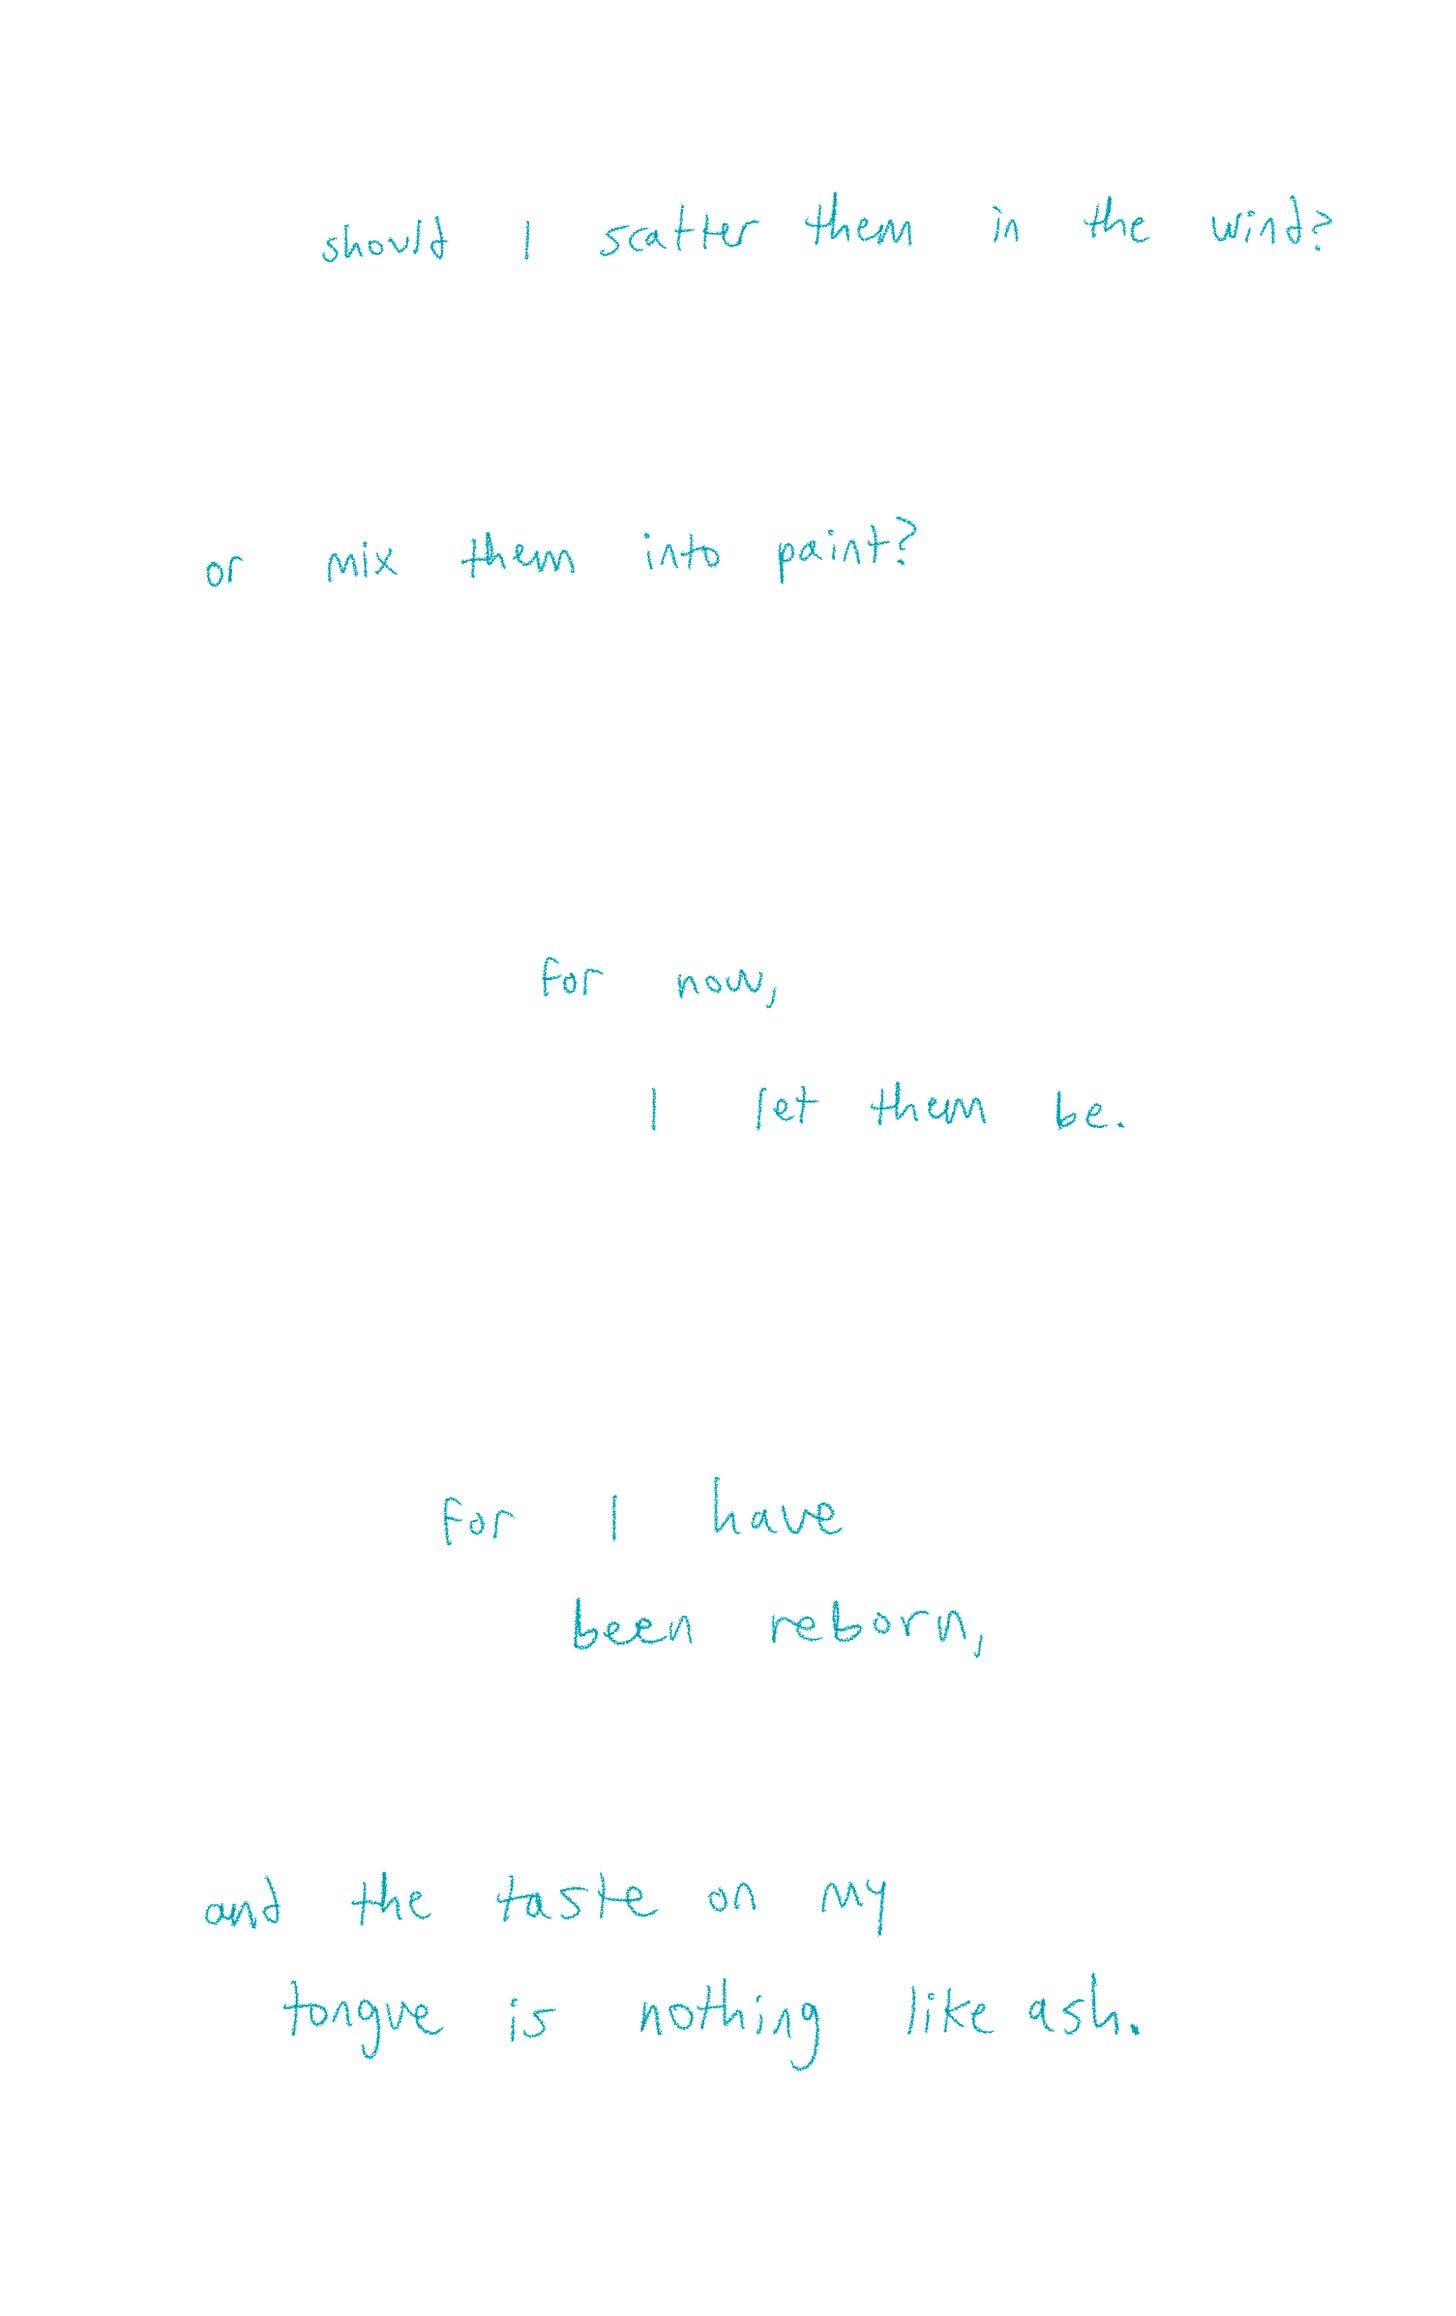 should I scatter them in the wind?
or mix them into paint?
for now,
I let them be.
for I have
been reborn,
and the taste on my
tongue is nothing like ash.